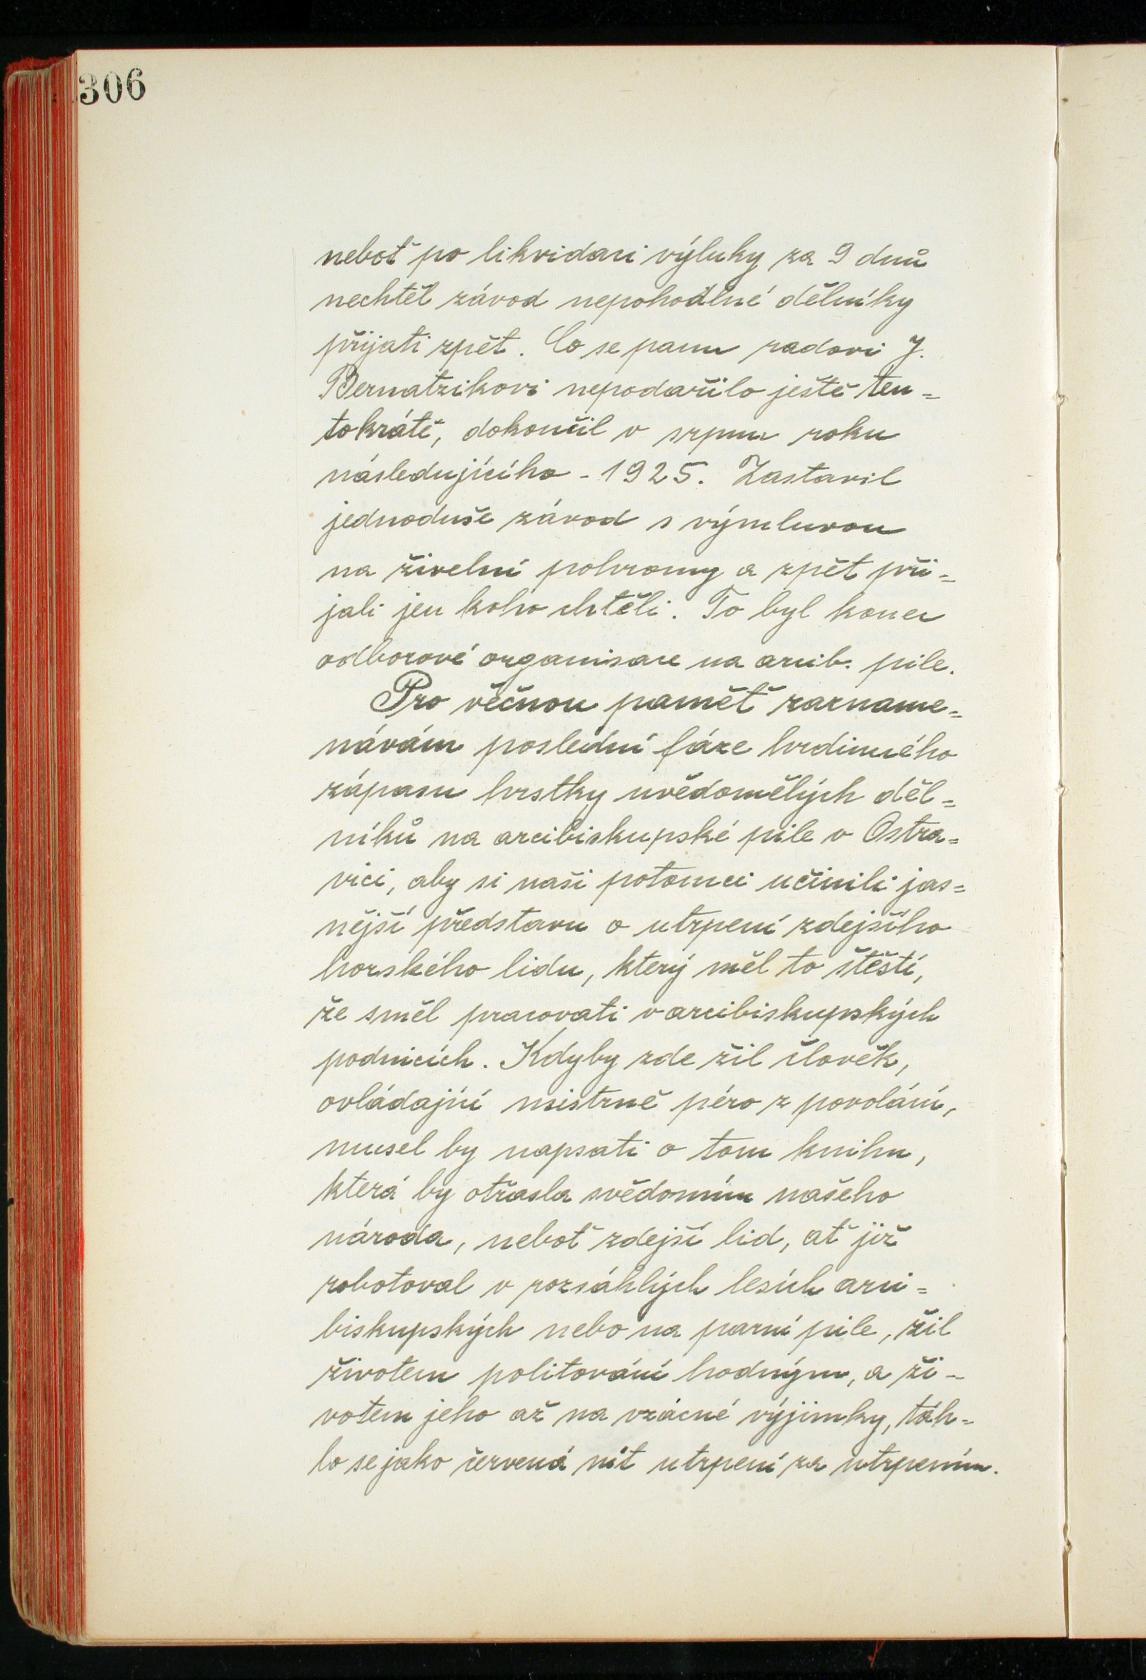 306
neboť po likvidaci výluky za 9 dnů
nechtěl závod nepohodlné dělníky
přijati zpět. Co se panu radovi J.
Bernatzikovi nepodařilo ještě ten=
tokráte, dokončil v srpnu roku
následujícího - 1925. Zastavil
jednoduše závod s výmluvou
na živelní pohromy a zpět při-
jali jen koho chtěli. To byl konec
odborové organisace na arcib. pile.
Pro věčnou paměť zazname=
návám poslední fáze hrdinného
zápasu hrstky uvědomělých děl=
níků na arcibiskupské pile v Ostra=
vici, aby si naši potomci učinili jas=
nější představu o utrpení zdejšího
horského lidu, který měl to štěstí,
že směl pracovati v arcibiskupských
podnicích. Kdyby zde žil člověk,
ovládající mistrně péro z povolání,
musel by napsati o tom knihu,
která by otřásla svědomím našeho
národa, neboť zdejší lid, ať již
robotoval v rozsáhlých lesích arci=
biskupských nebo na parní pile, žil
životem politování hodným, a ži-
votem jeho až na vzácné výjimky, táh=
lo se jako červená nit utrpení za utrpením.